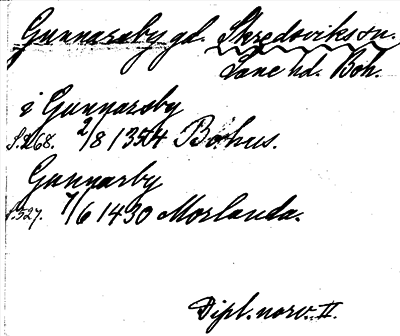 Gunnarsby gd. Skredsviks sn.
Lane hd. Boh.
i Gunnarsby
s. 268. 2/8 1354 Bohus.
Gunnarby
s. 527. 7/6 1430 Morlanda.
Dipl. norv. II.